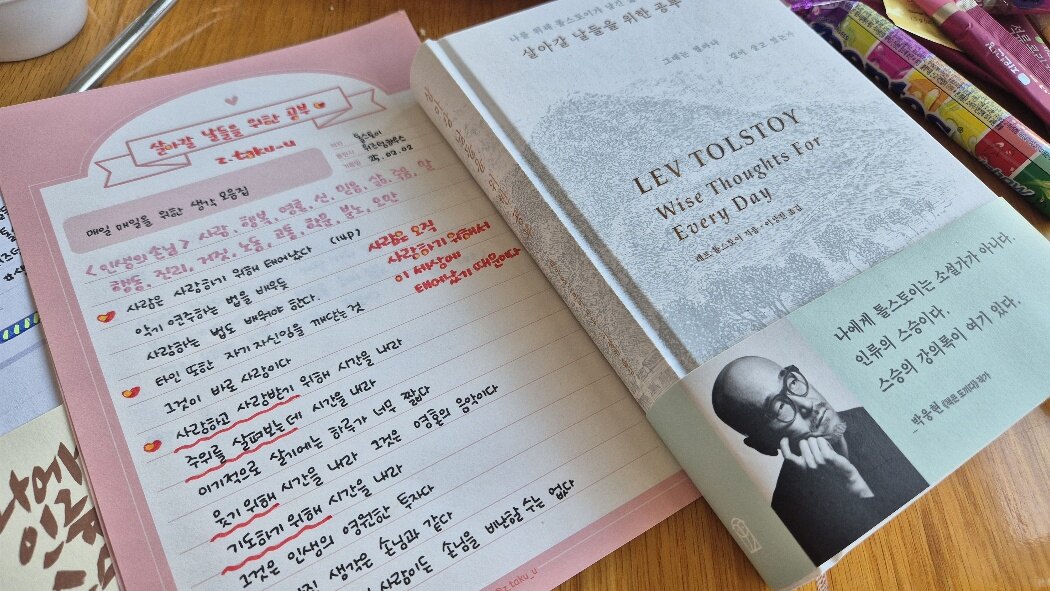 살아갈 날들을 위한 공부
z-taku-u
톨스토이
위즈덤하우스
25.02.02
매일 매일을 위한 생각 모음집
<인생의 손님> 사랑, 행복, 영혼, 신, 믿음, 삶, 죽음, 말
행동, 진리, 거짓, 노동, 고통, 학문, 분노, 오만
사람은 사랑하기 위해 태어났다 (14p)
악기 연주하는 법을 배우듯
사랑하는 법도 배워야 한다.
사람은 오직
사랑하기 위해서
이 세상에
태어났기 때문이다
타인 또한 자기 자신임을 깨닫는 것
그것이 바로 사랑이다
사랑하고 사랑받기 위해 시간을 내라
주위를 살펴보는데 시간을 내라
이기적으로 살기에는 하루가 너무 짧다
웃기 위해 시간을 내라 그것은 영혼의 음악이다
기도하기 위해 시간을 내라
그것은 인생의 영원한 투자다
생각은 손님과 같다
사람이든 손님을 비난할 수는 없다
@z.taku_u
살아갈 날들을 위한 공부
그대는 얼마나
살아갈 날들을 위한 공부
LEV TOLSTOY
Wise Thoughts For
Every Day
레프 톨스토이 지음·이상원 옮김
나에게 톨스토이는 소설가가 아니다.
인류의 스승이다.
스승의 강의록이 여기 있다.
박웅현 《책은 도끼다》 작가